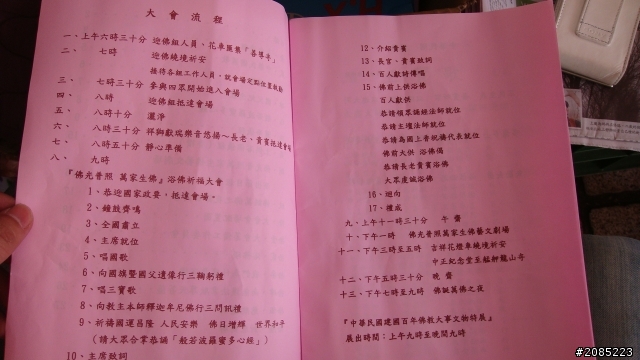 大會流程
一、上午六時三十分 迎佛組人員、花車匯集「善導寺」
二、 七時 迎佛繞境祈安
接待各組工作人員，就會場定點任置執勤
三、 七時三十分 參與四眾開始進入會場
四、 八時 迎佛組抵達會場
五、 八時十分 灑淨
六、 八時三十分 祥獅獻瑞樂音悠揚～長老、貴賓抵達會場
七、 八時五十分 靜心準備
八、 九時
『佛光普照 萬家生佛』浴佛祈福大會
1、恭迎國家政要，抵達會場。
2、鐘鼓齊鳴
3、全國肅立
4、主席就位
5、唱國歌
6、向國旗暨國父遺像行三鞠躬禮
7、唱三寶歌
8、向教主本師釋迦牟尼佛行三問訊禮
9、祈禱國運昌隆 人民安樂 佛日增輝 世界和平
（請大眾合掌恭誦「般若波羅蜜多心經」）
10、主席致詞
12、介紹貴賓
13、長官、貴賓致詞
14、百人獻詩傳唱
15、佛前上供浴佛
百人獻供
恭請領眾誦經法師就位
恭請主壇法師就位
恭請為國上香祝禱代表就位
佛前大供 浴佛偈
恭請長老貴賓浴佛
大眾虔誠浴佛
16、迴向
17、禮成
九、上午十一時三十分 午 齋
十、下午一時 佛光普照萬家生佛藝文劇場
十一、下午三時至五時 吉祥花燈車繞境祈安
中正紀念堂至艋舺龍山寺
十二、下午五時三十分 晚 齋
十三、下午七時至九時 佛誕萬佛之夜
『中華民國建國百年佛教大事文物特展』
展出時間：上午九時至晚間九時
#2085223